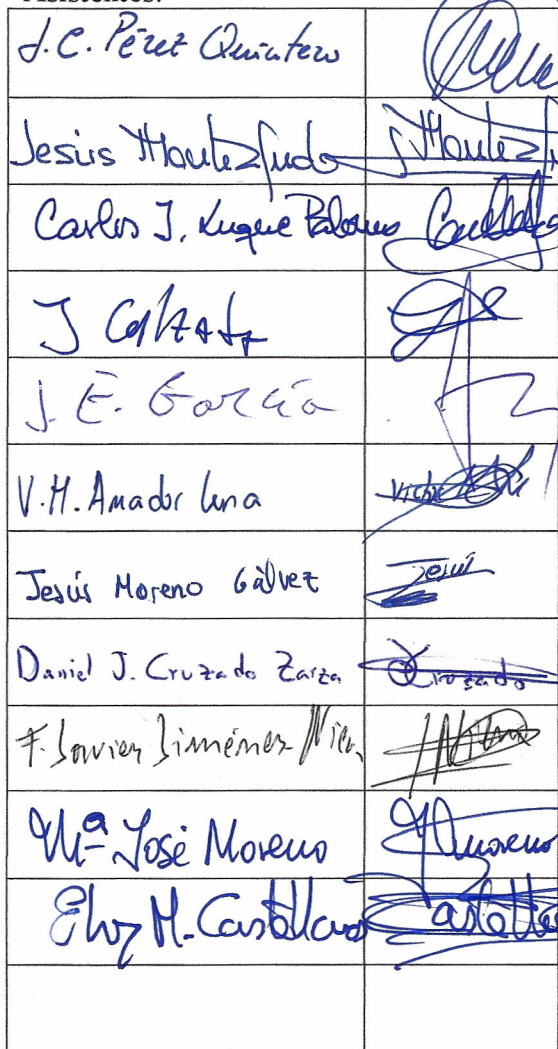 Asistentes:
J.C. Pérez Quintero
Jesús Montezfudo
Carlos J. Luque Palomo
J Calzada
J. E. García
V.M. Amador Luna Victor
Jesús Moreno Gálvez Jesús
Daniel J. Cruzado Zarza Cruzado
F. Javier Jiménez
Mª José Moreno Moreno
Eloy M. Castellano Castella